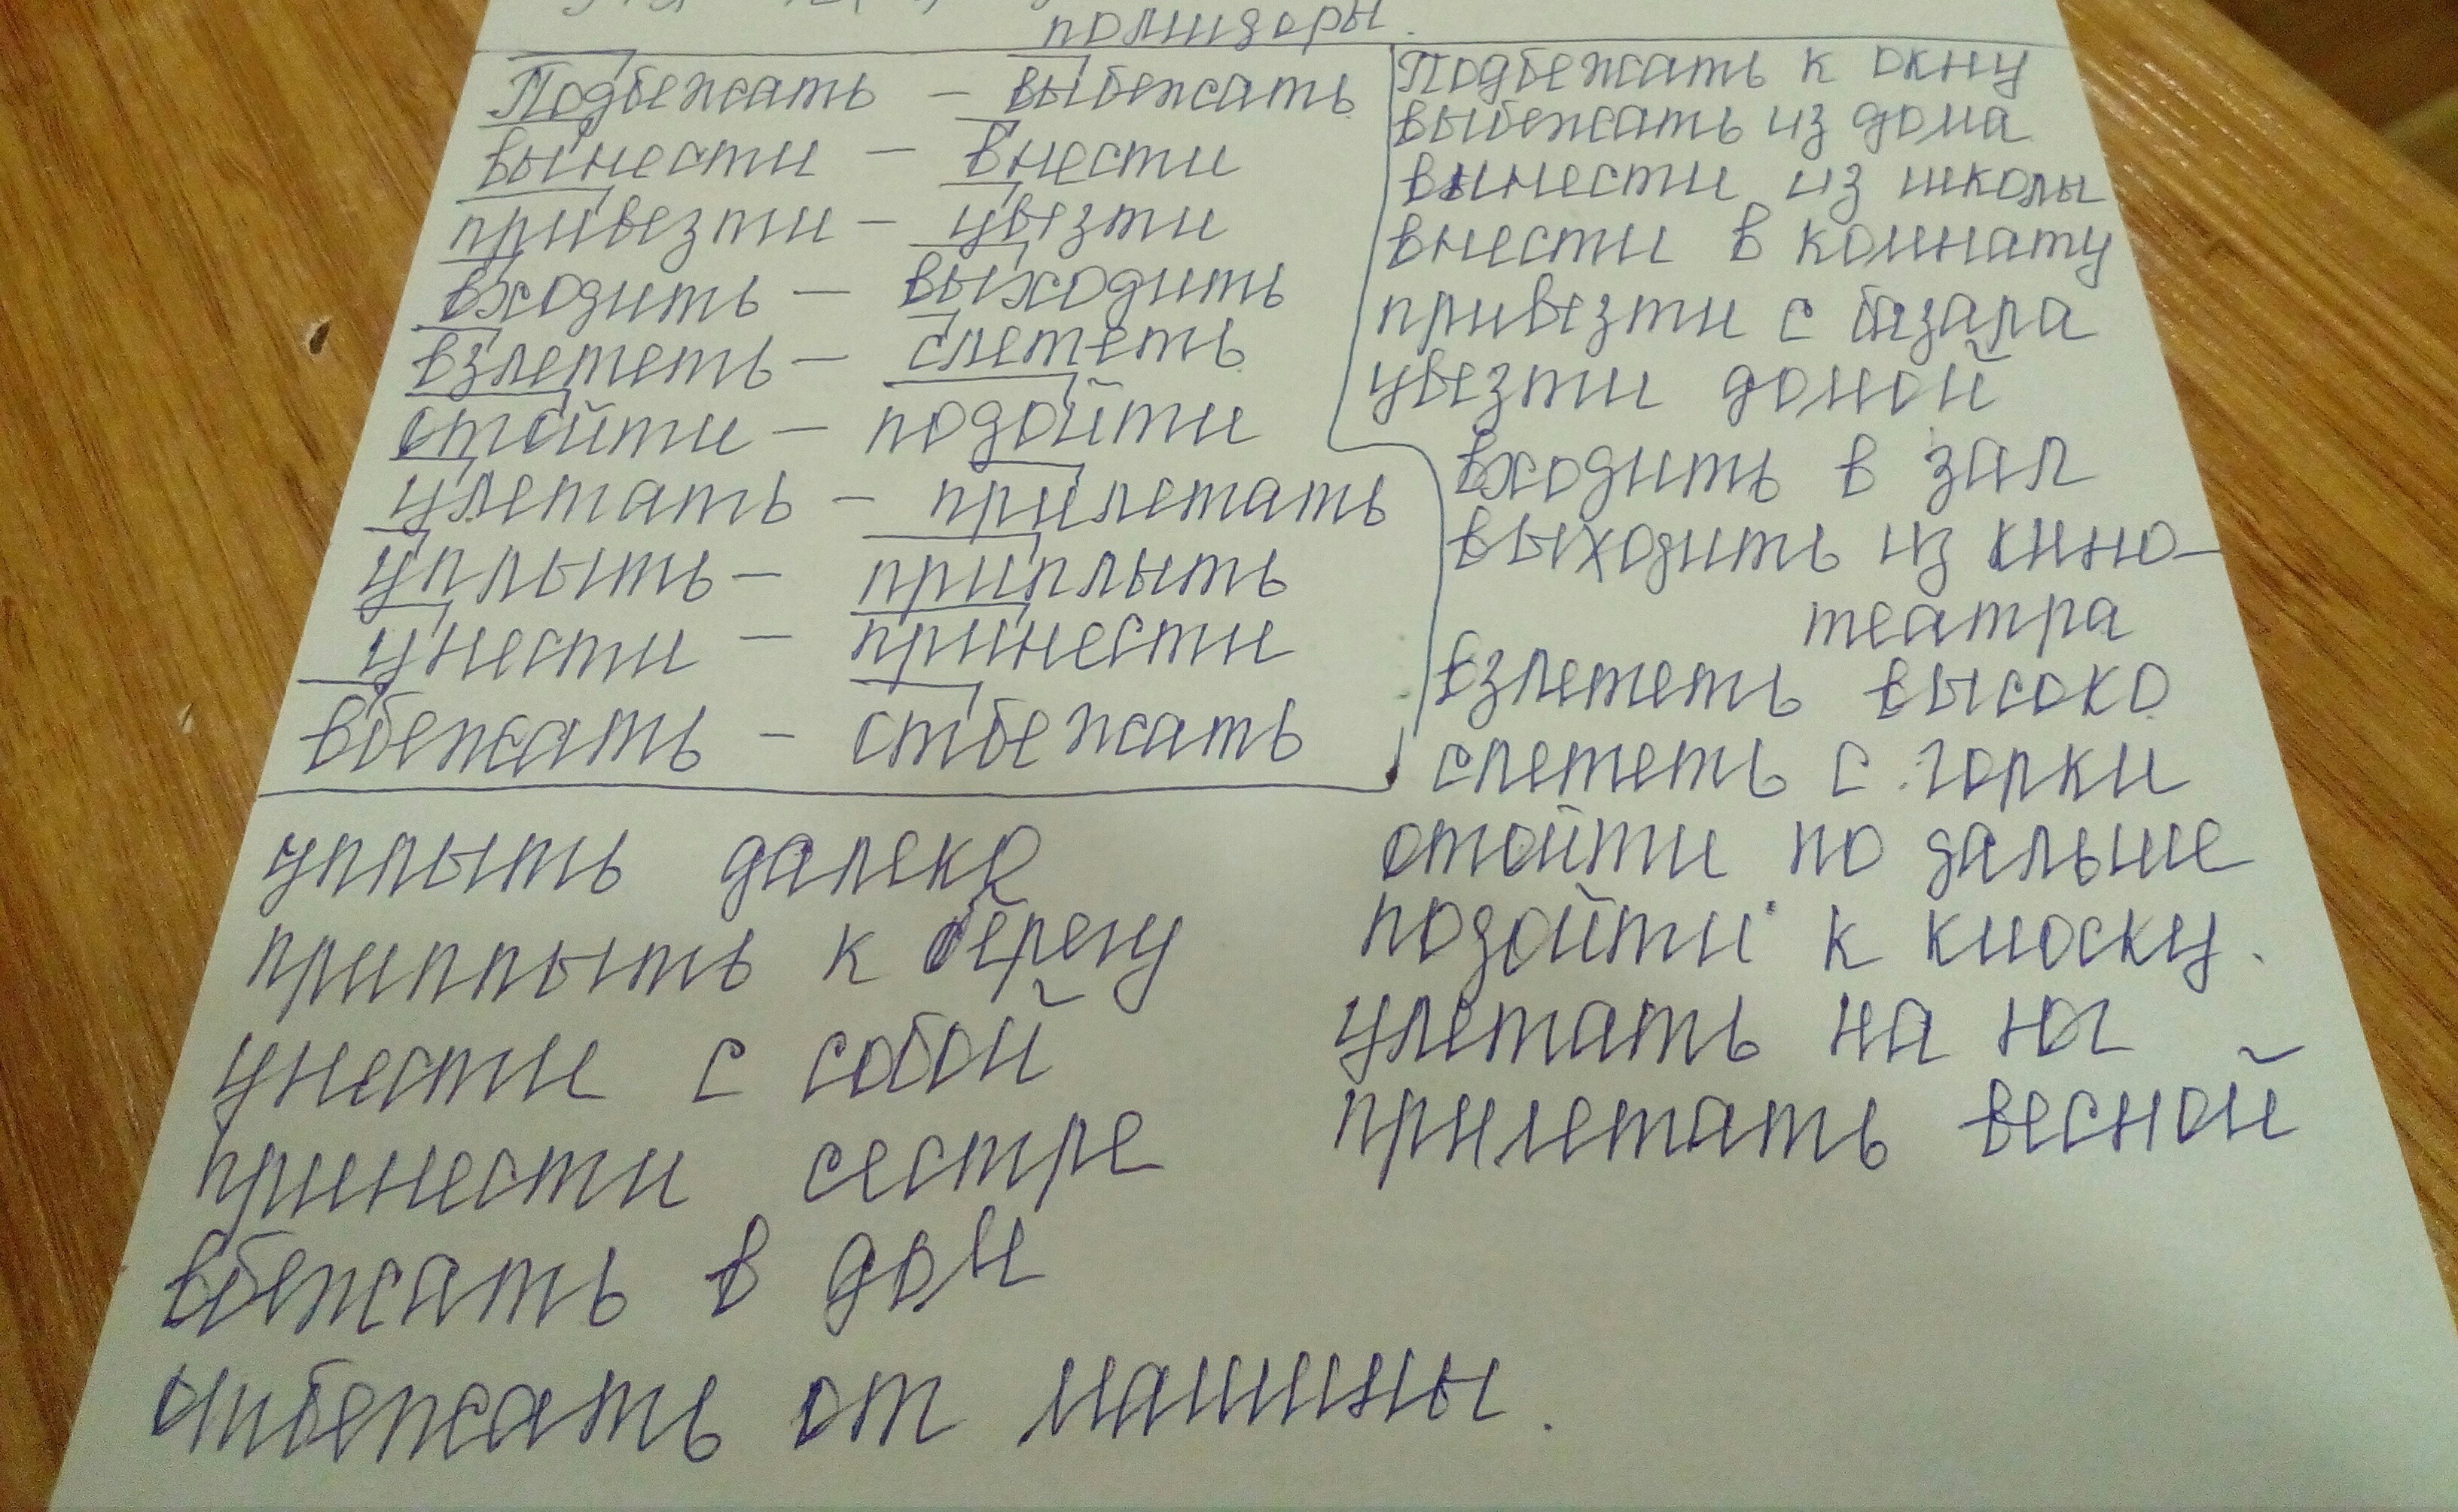 помидоры.
Подбежать – выбежать
вынести – внести
привезти – увезти
входить – выходить
взлететь – слететь
отойти – подойти
улетать – прилетать
уплыть – приплыть
унести – принести
вбежать – отбежать
Подбежать к окну
выбежать из дома
вынести из школы
внести в комнату
привезти с базара
увезти домой
входить в зал
выходить из кино-
театра
взлететь высоко
слететь с горки
отойти по дальше
подойти к киоску.
улетать на юг
прилетать весной
уплыть далеко
приплыть к берегу
унести с собой
принести сестре
вбежать в дом
отбежать от машины.